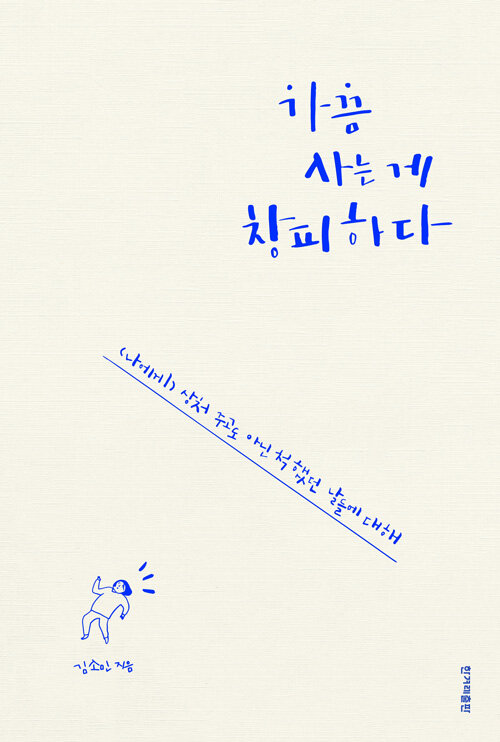 가끔
사는 게
창피하다
(나에게) 상처 주고도 아닌 척했던 날들에 대해
김소민 지음
한겨레출판